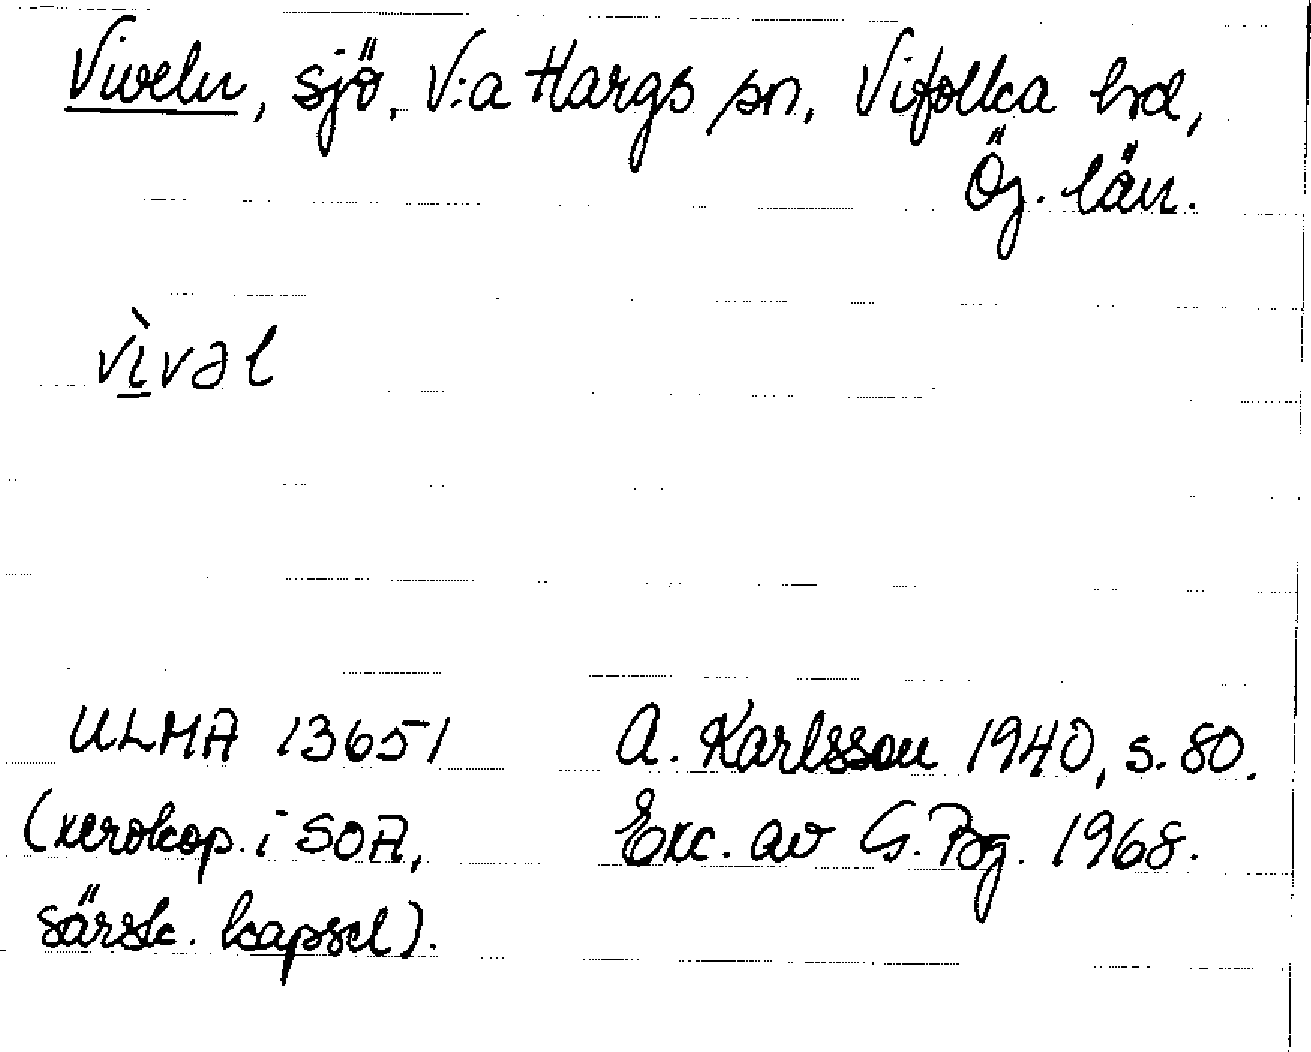 Viveln, sjö, V:a Hargs sn, Vifolka hd,
Ög. län.
vìvəl
ULMA 13651 A. Karlsson 1940, s. 80.
(xerokop. i SOA, Exc. av G. Bg. 1968.
särsk. kapsel).